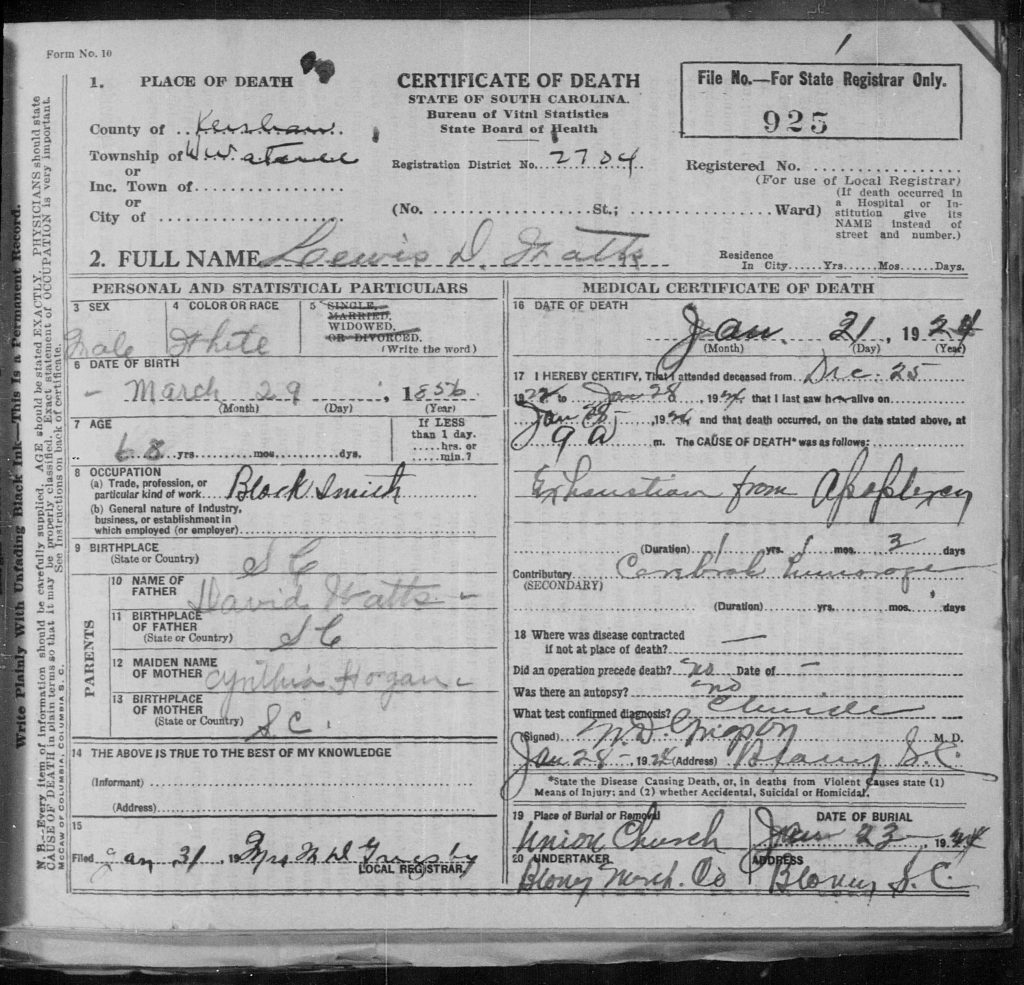 Form No. 10
1. PLACE OF DEATH
CERTIFICATE OF DEATH
STATE OF SOUTH CAROLINA.
Bureau of Vital Statistics
State Board of Health
File No.—For State Registrar Only.
925
County of Kershaw
Township of W Wateree
or
Inc. Town of
or
City of
Registration District No. 2704
Registered No.
(For use of Local Registrar)
(No. St.; Ward)
(If death occurred in
a Hospital or In-
stitution give its
NAME instead of
street and number.)
2. FULL NAME Lewis D. Watts
Residence
In City Yrs. Mos. Days.
PERSONAL AND STATISTICAL PARTICULARS
3 SEX
Male
4 COLOR OR RACE
White
5 SINGLE,
MARRIED,
WIDOWED,
OR DIVORCED.
(Write the word)
6 DATE OF BIRTH
March 29, 1856
(Month) (Day) (Year)
7 AGE
68 yrs. mos. dys.
If LESS
than 1 day.
hrs. or
min.?
8 OCCUPATION
(a) Trade, profession, or
particular kind of work Black Smith
(b) General nature of Industry,
business, or establishment in
which employed (or employer)
9 BIRTHPLACE
(State or Country) S C
PARENTS
10 NAME OF
FATHER David Watts
11 BIRTHPLACE
OF FATHER
(State or Country) S C
12 MAIDEN NAME
OF MOTHER Cynthia Hogan
13 BIRTHPLACE
OF MOTHER
(State or Country) S.C.
14 THE ABOVE IS TRUE TO THE BEST OF MY KNOWLEDGE
(Informant)
(Address)
15
Filed Jan 31 19 Mrs N D
LOCAL REGISTRAR
MEDICAL CERTIFICATE OF DEATH
16 DATE OF DEATH
Jan. 21, 1924
(Month) (Day) (Year)
17 I HEREBY CERTIFY, That I attended deceased from Dec. 25
192 to Jan 28, 1924 that I last saw h alive on
Jan 28, 1924 and that death occurred, on the date stated above, at
9 a m. The CAUSE OF DEATH* was as follows:
Exhaustion from Apoplexy
(Duration) 1 yrs. 1 mos. 3 days
Contributory
(SECONDARY)
(Duration) yrs. mos. days
18 Where was disease contracted
if not at place of death? —
Did an operation precede death? no Date of —
Was there an autopsy? no
What test confirmed diagnosis?
(Signed) N. D. M. D.
Jan 28 - 1924 (Address) Blaney S.C.
*State the Disease Causing Death, or, in deaths from Violent Causes state (1)
Means of Injury; and (2) whether Accidental, Suicidal or Homicidal.
19 Place of Burial or Removal
Union Church
DATE OF BURIAL
Jan 23, 1924
20 UNDERTAKER
Blaney Merch. Co
ADDRESS
Blaney S.C.
Write Plainly With Unfading Black Ink—This is a Permanent Record.
N. B.—Every item of information should be carefully supplied. AGE should be stated EXACTLY. PHYSICIANS should state
CAUSE OF DEATH in plain terms so that it may be properly classified. Exact statement of OCCUPATION is very important.
See Instructions on back of certificate.
McCAW OF COLUMBIA, COLUMBIA S. C.